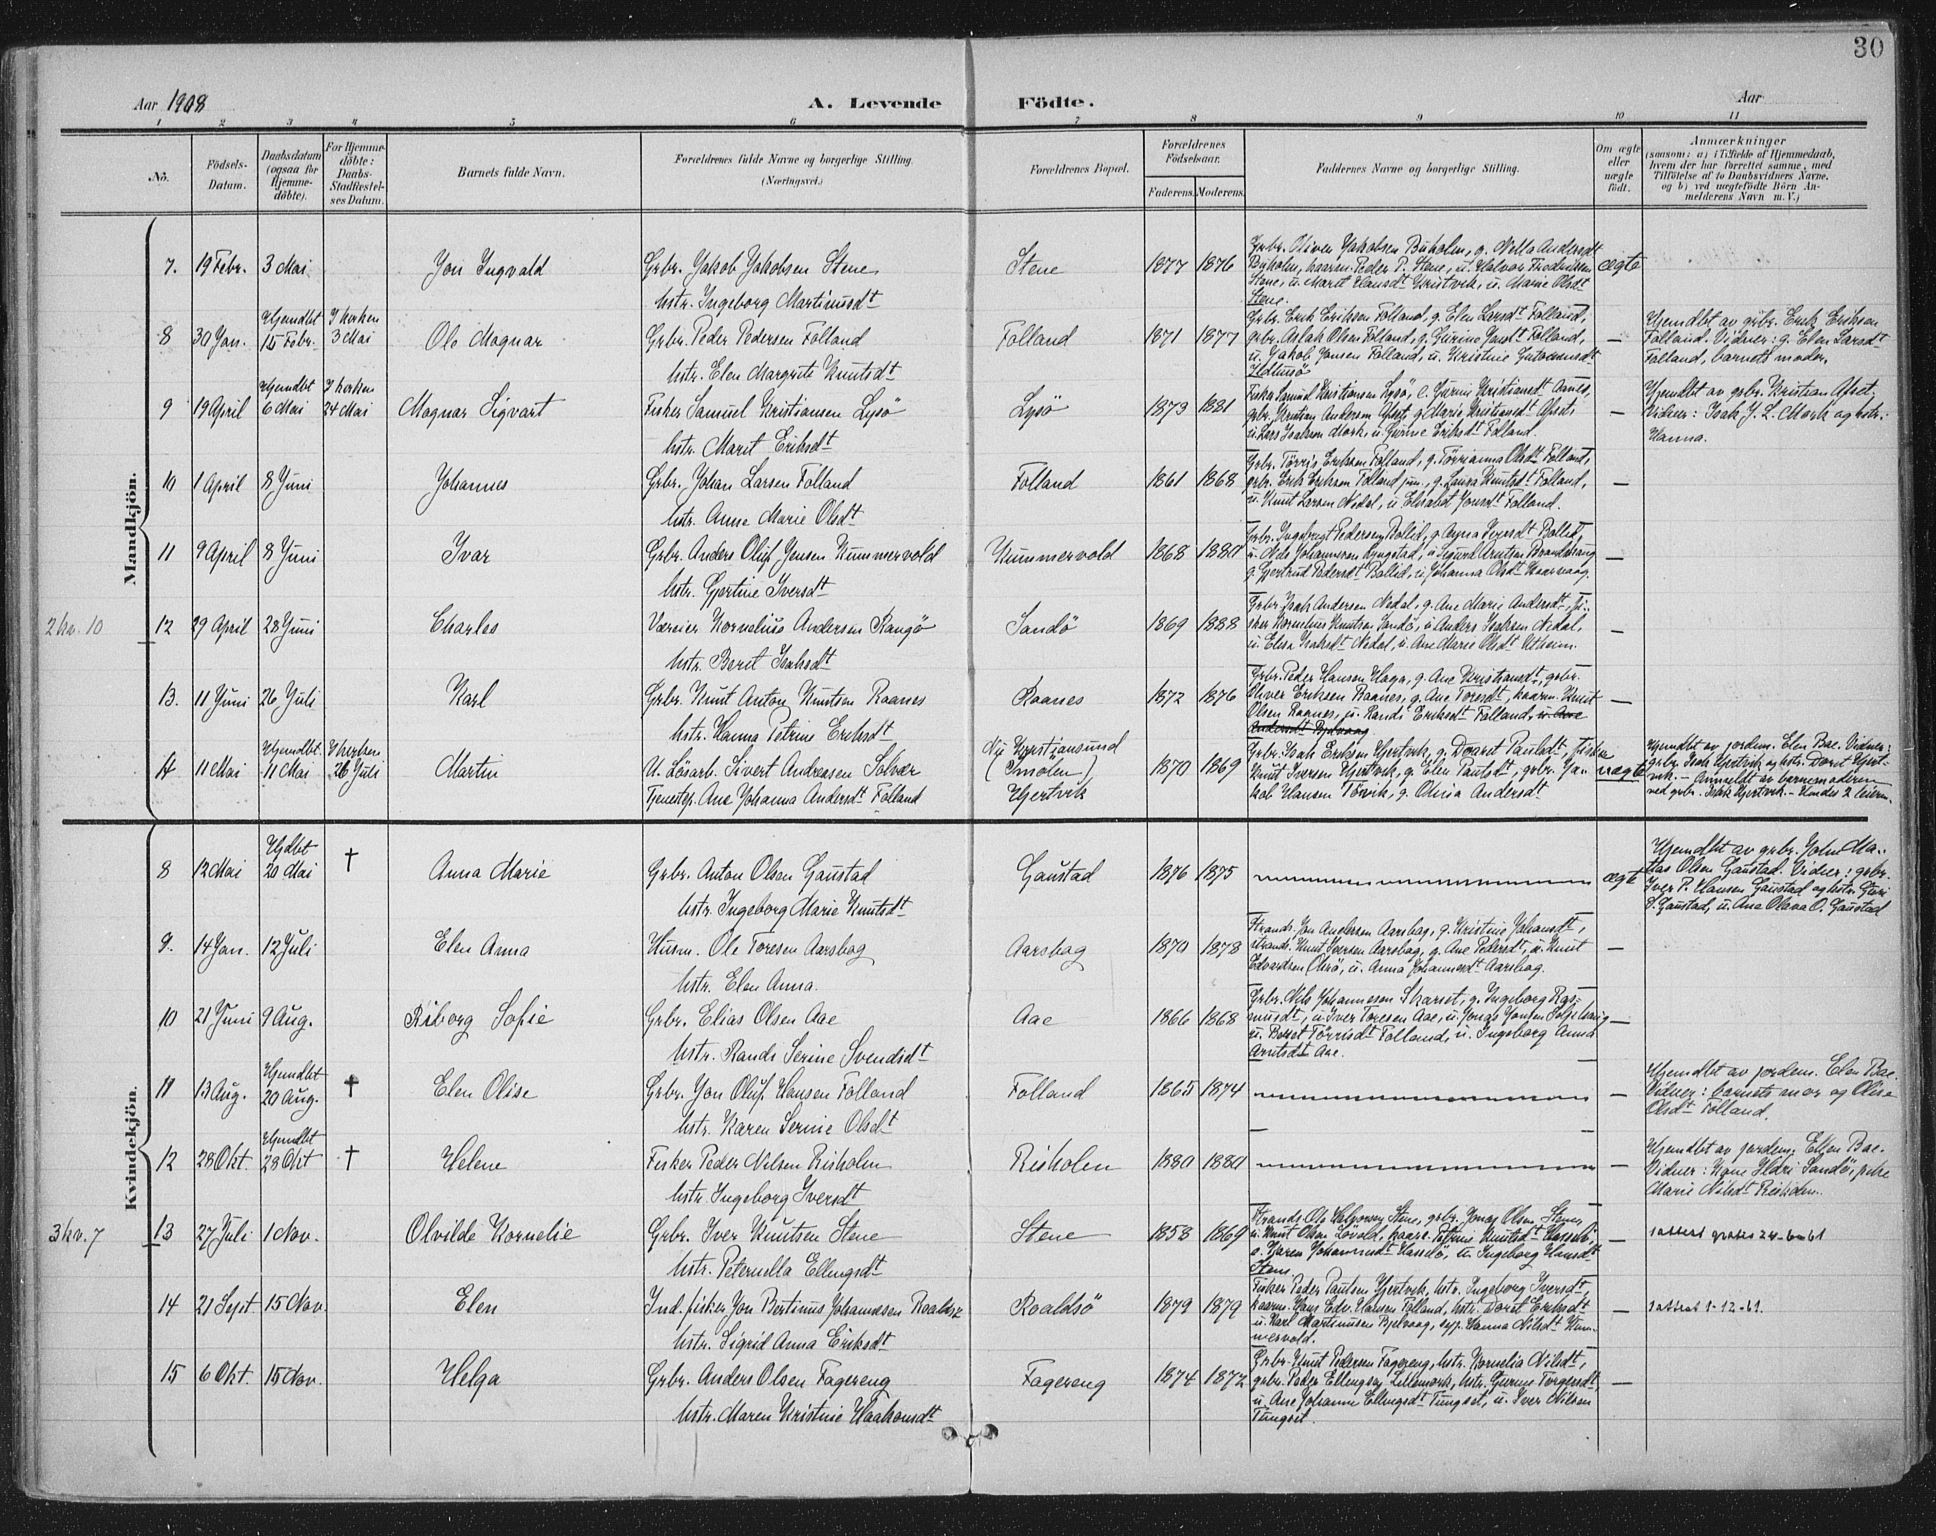 30
Aar 1908
A. Levende Födte.
Aar
1 2 3 4 5 6 7 8 9 10 11
No.
Födsels-Datum.
Daabsdatum (ogsaa for Hjemme-döbte).
For Hjemme-döbte: Daabs-Stadfæstel-ses Datum.
Barnets fulde Navn.
Forældrenes fulde Navne og borgerlige Stilling.
(Næringsvei.)
Forældrenes Bopæl.
Forældrenes Födselsaar.
Faderens. Moderens.
Faddernes Navne og borgerlige Stilling.
Om ægte eller uægte födt.
Anmærkninger
(saasom: a) i Tilfælde af Hjemmedaab,
hvem der har forrettet samme, med
Tilföielse af to Daabsvidners Navne,
og b) ved uægtefödte Börn An-
melderens Navn m. V.)
Mandkjön.
7. 19 Febr. 3 Mai Jon Ingvald Grbr. Jakob Jakobsen Stene
hstr. Ingeborg Martinusdt
Stene 1877 1876
Grbr. Oliver Jakobsen Buholm, g. Nella Andersdt
Buholm, kaarm. Peder P. Stene, u. Halvor Fredriksen
Stene, u. Marit Hansdt Kristvik, u. Marie Olsdt
Stene.
ægte
8 30 Jan. Hjemdbt 15 Febr. I kirken 3 Mai Ole Magnar Grbr. Peder Pedersen Folland
hstr. Elen Margrete Knutsdt
Folland 1871 1877
Grbr. Erik Eriksen Folland, g. Elen Larsdt Folland,
grbr. Aslak Olsen Folland, g. Gurine Jonsdt Folland,
u. Jakob Jonsen Folland, u. Kristine
—
Hjemdbt av grbr. Erik Eriksen
Folland. Vidner: g. Elen Larsdt
Folland, barnets moder.
9 19 April Hjemdbt 6 Mai I kirken 24 Mai Magnar Sigvart Fisker Samuel Kristiansen Lysö
hstr. Marit Eriksdt
Lysö 1873 1881
Fisker Samuel Kristiansen Lysö, Gurine Kristiansdt Aanes,
grbr. Kristian Andersen g. Marie Kristiansdt
u. Lars Isaksen Mork, u. Gurine Eriksdt Folland.
—
Hjemdbt av grbr. Kristian
Vidner: Isak J. L. Mork og hstr.:
Hanna.
10 1 April 8 Juni Johannes Grbr. Johan Larsen Folland
hstr. Anne Marie Olsdt
Folland 1861 1868
Grbr. Törris Eriksen Folland, g. Törrianna Olsdt Folland,
grbr. Erik Eriksen Folland jun., g. Laura Knutsdt Folland,
u. Knut Larsen Nedal, u. Elisabet Jonsdt Folland.
—
11 9 April 8 Juni Ivar Grbr. Anders Oluf Jensen Kummervold
hstr. Gjertine Iversdt
Kummervold 1868 1880
Grbr. Ingebrigt Pedersen Bollid, g. Iversdt Bollid,
u. Johannesen Lyngstad, u. Sigurd Knutsen
g. Gjertrud Pedersdt Bollid, u. Johanna Olsdt Kaarvaag.
—
2 kv. 10
12 29 April 28 Juni Charles Væreier Kornelius Andersen Rangö
hstr. Berit Isaksdt
Sandö 1869 1888
Grbr. Isak Andersen Nedal, g. Ane Marie Andersdt, fi-
sker Kornelius Knutsen Sandö, u. Anders Isaksen Nedal,
u. Elesa Isaksdt Nedal, u. Ane Marie Olsdt Utheim.
—
13. 11 Juni 26 Juli Karl Grbr. Knut Anton Knutsen Raanes
hstr. Hanna Petrine Eriksdt
Raanes 1872 1876
Grbr. Peder Hansen Haga, g. Ane Kristiansdt, grbr.
Oliver Eriksen Raanes, g. Ane Toresdt, kaarm. Knut
Olsen Raanes, u. Randi Eriksdt Folland, u. Ane
Andersdt Bjelvaag
—
14 11 Mai Hjemdbt. 11 Mai I kirken 26 Juli Martin U. Lösarb. Sivert Andreasen Solvær
Tjenestep. Ane Johanna Andersdt Folland
Kristiansund
(Smölen)
Hjertvik
1870 1869
Grbr. Isak Eriksen Hjertvik, g. Doret Paulsdt, fisker
Knut Iversen Hjertvik, g. Elen Paulsdt, grbr. Ja-
kob Hansen Tövik, g. Olina Andersdt
uægte
Hjemdbt av jordem. Elen Bae. Vidner:
grbr. Isak Hjertvik og hstr. Doret Hjert-
vik. – Anmeldt av barnemoderen
ved grbr. Isak Hjertvik. – Hendes 2 leierm.
Kvindekjön.
8 12 Mai Hjdbt 20 Mai † Anna Marie Grbr. Anton Olsen Gaustad
hstr. Ingeborg Marie Knutsdt
Gaustad 1876 1875 ægte
Hjemdbt av grbr. John Ma-
tias Olsen Gaustad. Vidner: grbr.
Iver P. Hansen Gaustad og hstr. Guri
S. Gaustad, u. Ane Olava O. Gaustad
9. 14 Jan. 12 Juli Elen Anna Husm. Ole Toresen Aarsbog
hstr. Elen Anna.
Aarsbog 1870 1878
Strands. Jon Andersen Aarsbog, g. Kristine Johansdt,
strands. Knut Iversen Aarsbog, g. Ane Pedersdt, u. Knut
Edvardsen Olsö, u. Anna Johannesdt Aarsbog.
—
10 21 Juni 9 Aug. Riborg Sofie Grbr. Elias Olsen Aae
hstr. Randi Serine Svendsdt
Aae 1866 1868
Grbr. Nils Johannesen Skarset, g. Ingeborg Ras-
musdt, u. Iver Toresen Aae, u. Jonas Jonsen
u. Beret Törrisdt Folland, u. Ingeborg Anna
Arntsdt Aae.
—
11 13 Aug. Hjemdbt 20 Aug. † Elen Olise Grbr. Jon Oluf Hansen Folland
hstr. Karen Serine Olsdt
Folland 1865 1874 —
Hjemdbt av jordem. Elen Bae.
Vidner: barnets mor og Olise
Olsdt Folland.
12 28 Okt. Hjemdbt 28 Okt † Helene Fisker Peder Nilsen Risholm
hstr. Ingeborg Iversdt
Risholen 1880 1880 —
Hjemdbt av jordem: Elen Bae.
Vidner: Kone Ildri Sandö, pike
Marie Nilsdt Risholen.
3 kv. 7
13 27 Juli 1 Nov. Olvilde Kornelie Grbr. Iver Knutsen Stene
hstr. Peternella Ellingsdt
Stene 1858 1869
Strands. Ole Halvorsen Stene, grbr. Jonas Olsen Stene,
u. Knut Olsen Lövold, kaark. Petrine Knutsdt Hasselö,
Karen Johannesdt Hasselö, u. Ingeborg Hansdt
Stene.
—
1 attest gratis 24-6-61
14 21 Sept 15 Nov. Elen Ind. fisker Jon Bertinus Johannesen Roaldsö
hstr. Sigrid Anna Eriksdt
Roaldsö 1879 1879
Fisker Peder Paulsen Hjertvik, hstr. Ingeborg Iversdt,
kaarm. Hans Edv. Hansen Folland, hstr. Doret Eriksdt
u. Karl Martinusen Bjelvaag, syp. Hanna Nilsdt Kum-
mervold.
—
1 attest 1-12-61.
15 6 Okt. 15 Nov. Helga Grbr. Anders Olsen Fagereng
hstr. Maren Kristine Haakonsdt
Fagereng 1874 1872
Grbr. Knut Pedersen Fagereng, hstr. Kornelia Nilsdt,
grbr. Peder Ellingsen Lillemork, hstr. Gurine Torgersdt,
u. Ane Johanne Ellingsdt Tungset, u. Iver Nilsen
Tungset.
—